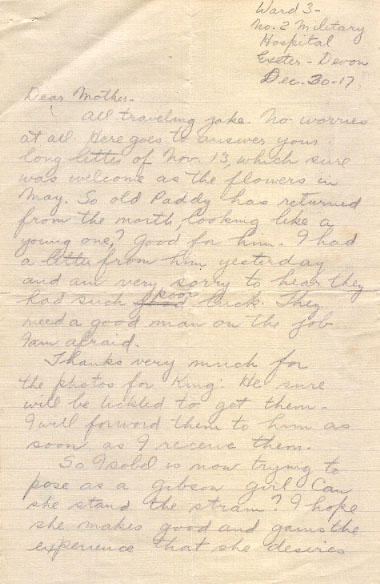 Ward 3-
No. 2 Military
Hospital
Exeter - Devon
Dec. 30-17
Dear Mother-
All traveling jake. No worries
at all. Here goes to answer your
long letter of Nov. 13, which sure
was welcome as the flowers in
May. So old Paddy has returned
from the north, looking like a
young one? Good for him. I had
a letter from him yesterday
and am very sorry to hear they
had such poor luck. They
need a good man on the job
I am afraid.
Thanks very much for
the photos for King. He sure
will be tickled to get them-
I will forward them to him as
soon as I receive them.
So Isobel is now trying to
pose as a gibson girl. Can
she stand the strain? I hope
she makes good and gains the
experience that she desires